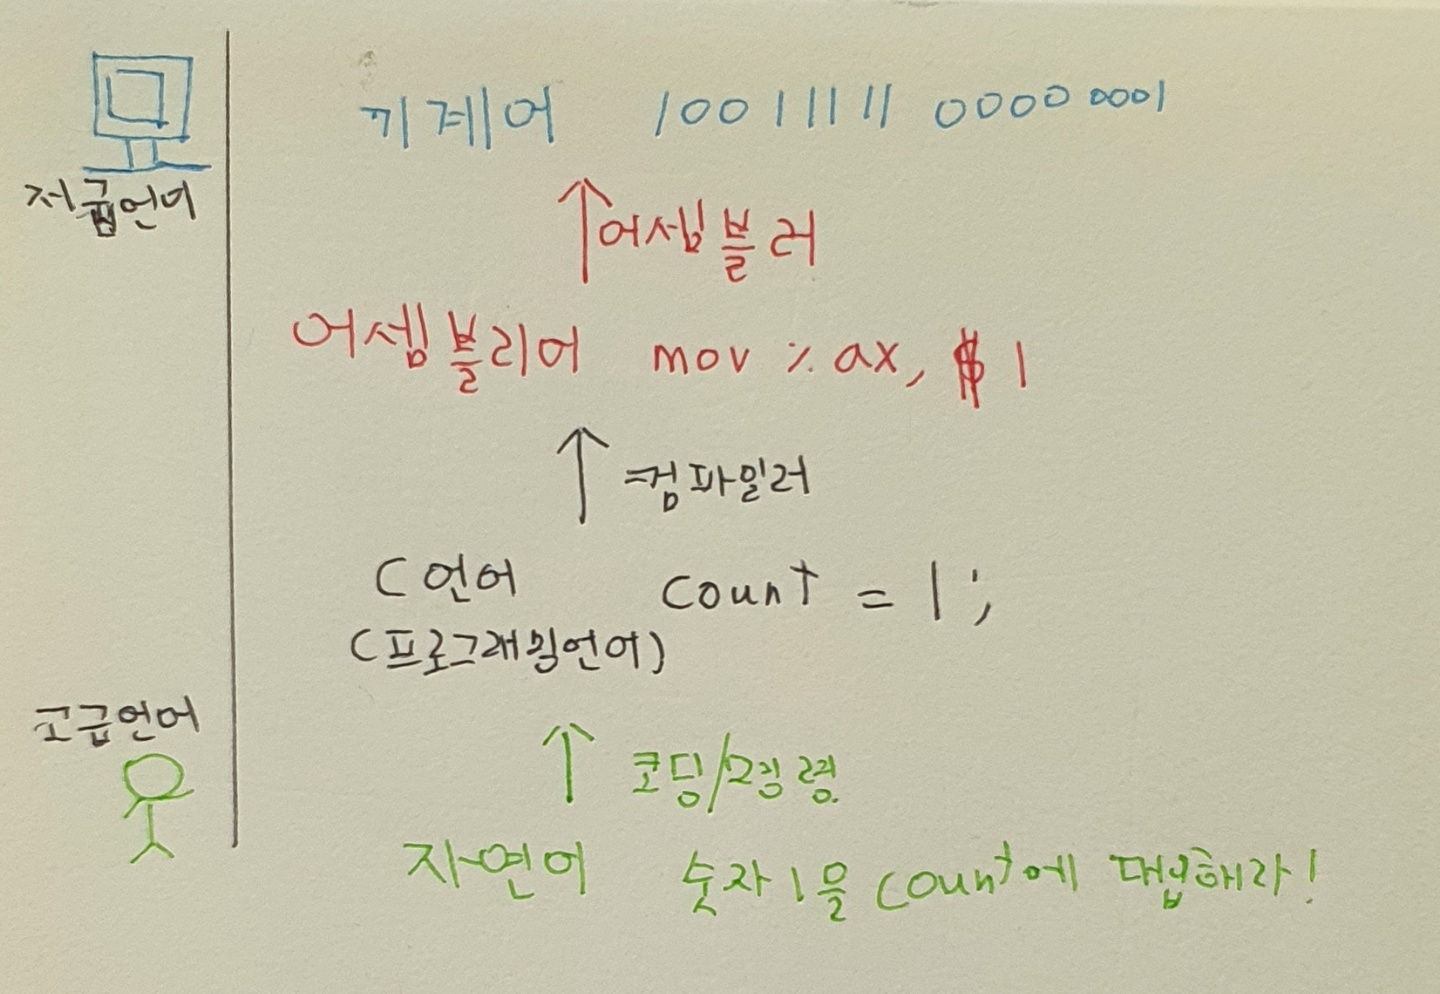 기계어 10011111 00000001
저급언어
어셈블러
어셈블리어 mov % ax, $ 1
컴파일러
C 언어 count = 1;
(프로그래밍언어)
고급언어
코딩/명령
자연어 숫자 1을 count에 대입해라!